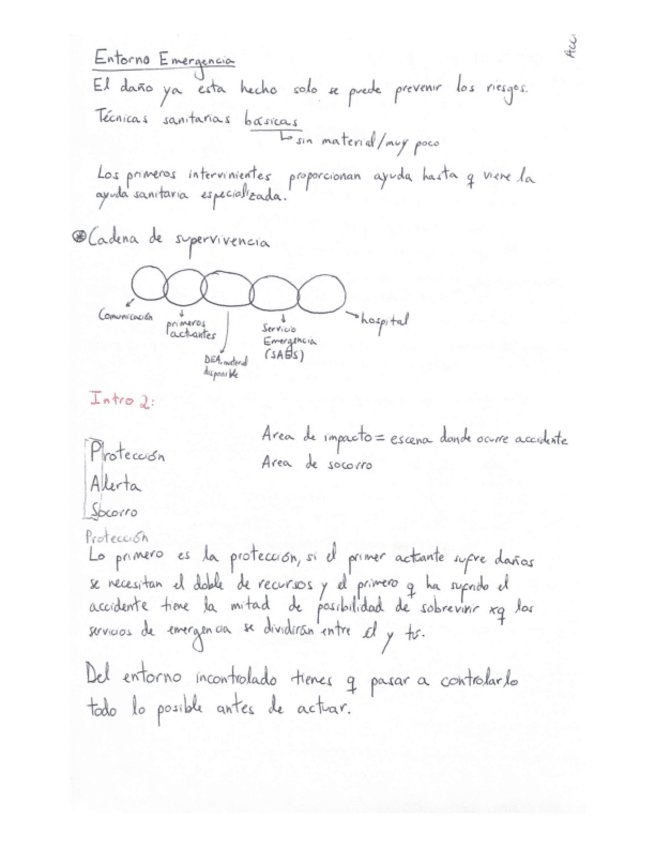 Acci
Entorno Emergencia
El daño ya esta hecho solo se puede prevenir los riesgos.
Técnicas sanitarias básicas
sin material/muy poco
Los primeros intervinientes proporcionan ayuda hasta q viene la
ayuda sanitaria especializada.
Cadena de supervivencia
Comunicación
primeros
actuantes
DEA, material
disponible
Servicio
Emergencia
hospital
Intro 2:
Protección
Alerta
Socorro
Area de impacto = escena donde ocurre accidente
Area de socorro
Protección
Lo primero es la protección, si el primer actuante sufre daños
se necesitan el doble de recursos y el primero q ha sufrido el
accidente tiene la mitad de posibilidad de sobrevivir xq los
servicios de emergencia se dividirán entre él y tú.
Del entorno incontrolado tienes q pasar a controlarlo
todo lo posible antes de actuar.